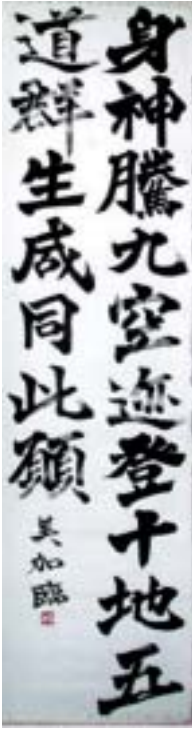 身神騰九空迹登十地五
道群生咸同此願
美加臨